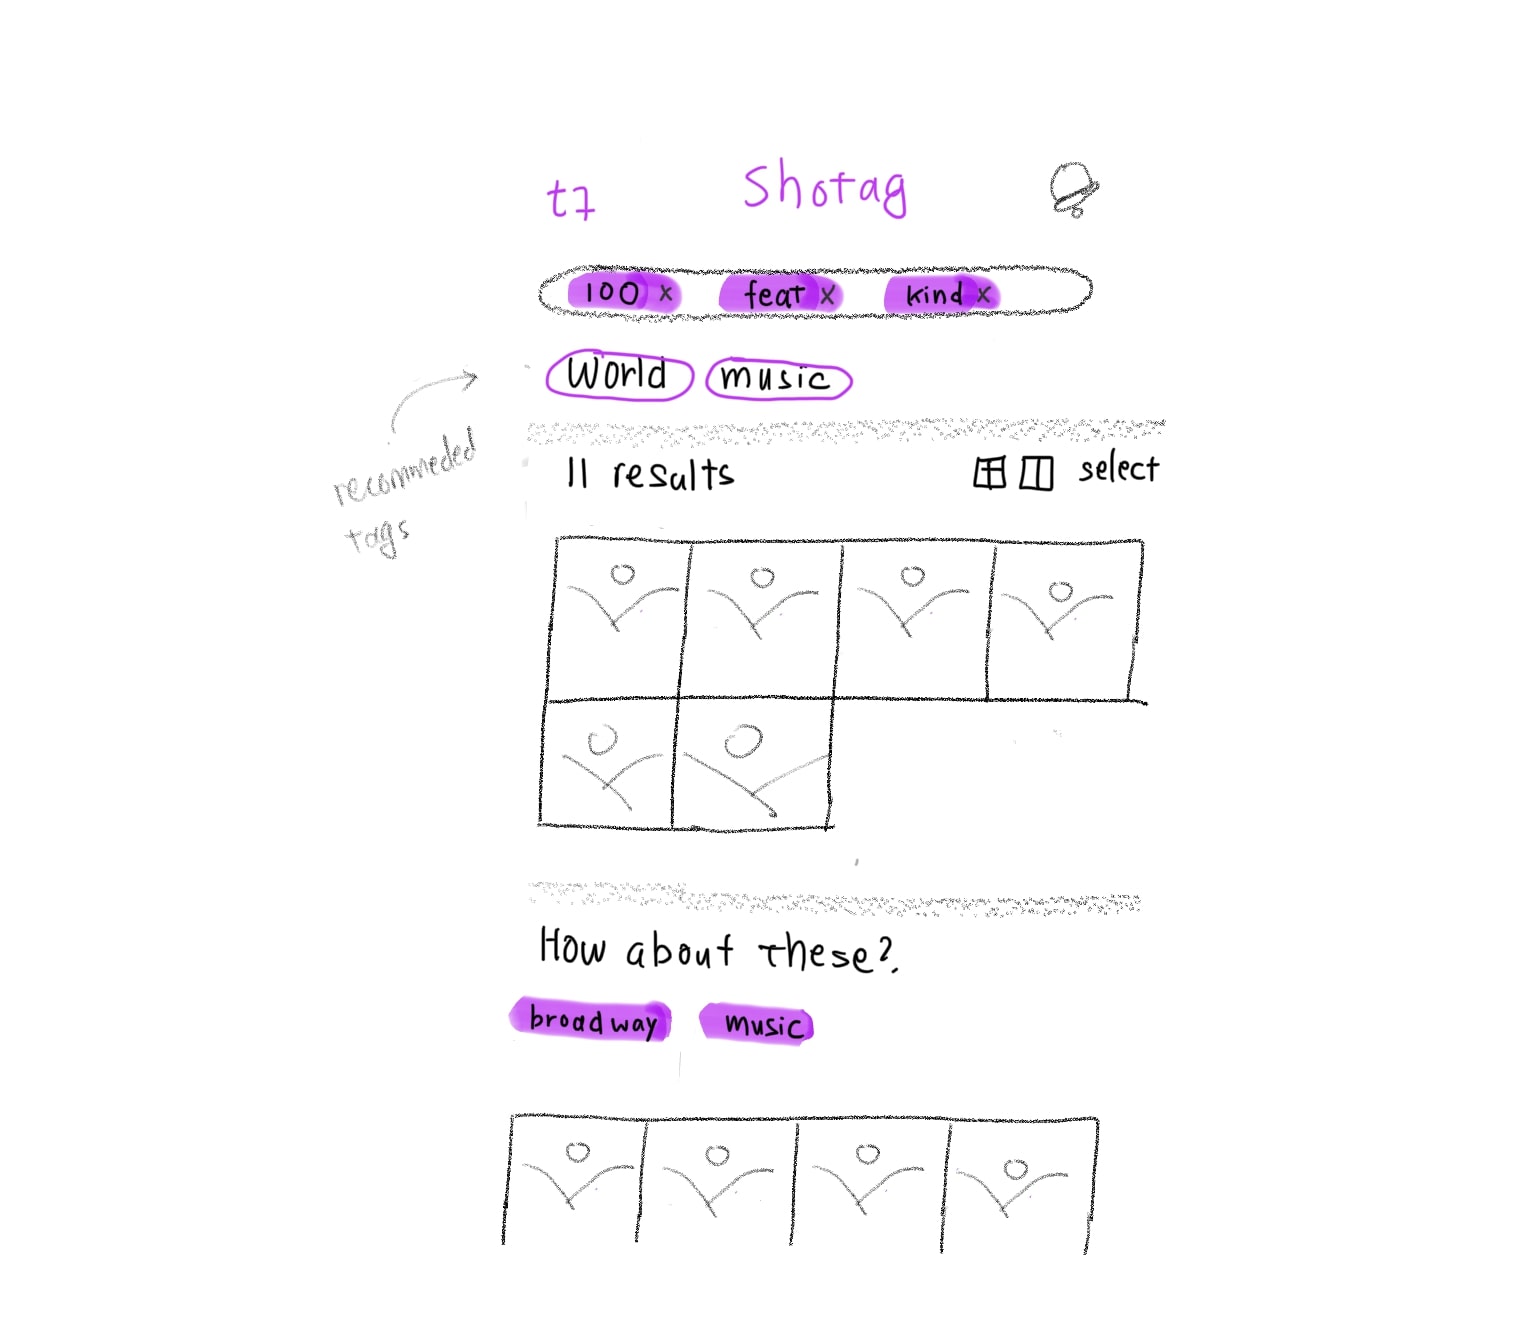 t7 Shotag
100 x feat x kind x
World music
recommeded
tags
11 results select
How about these?
broadway music